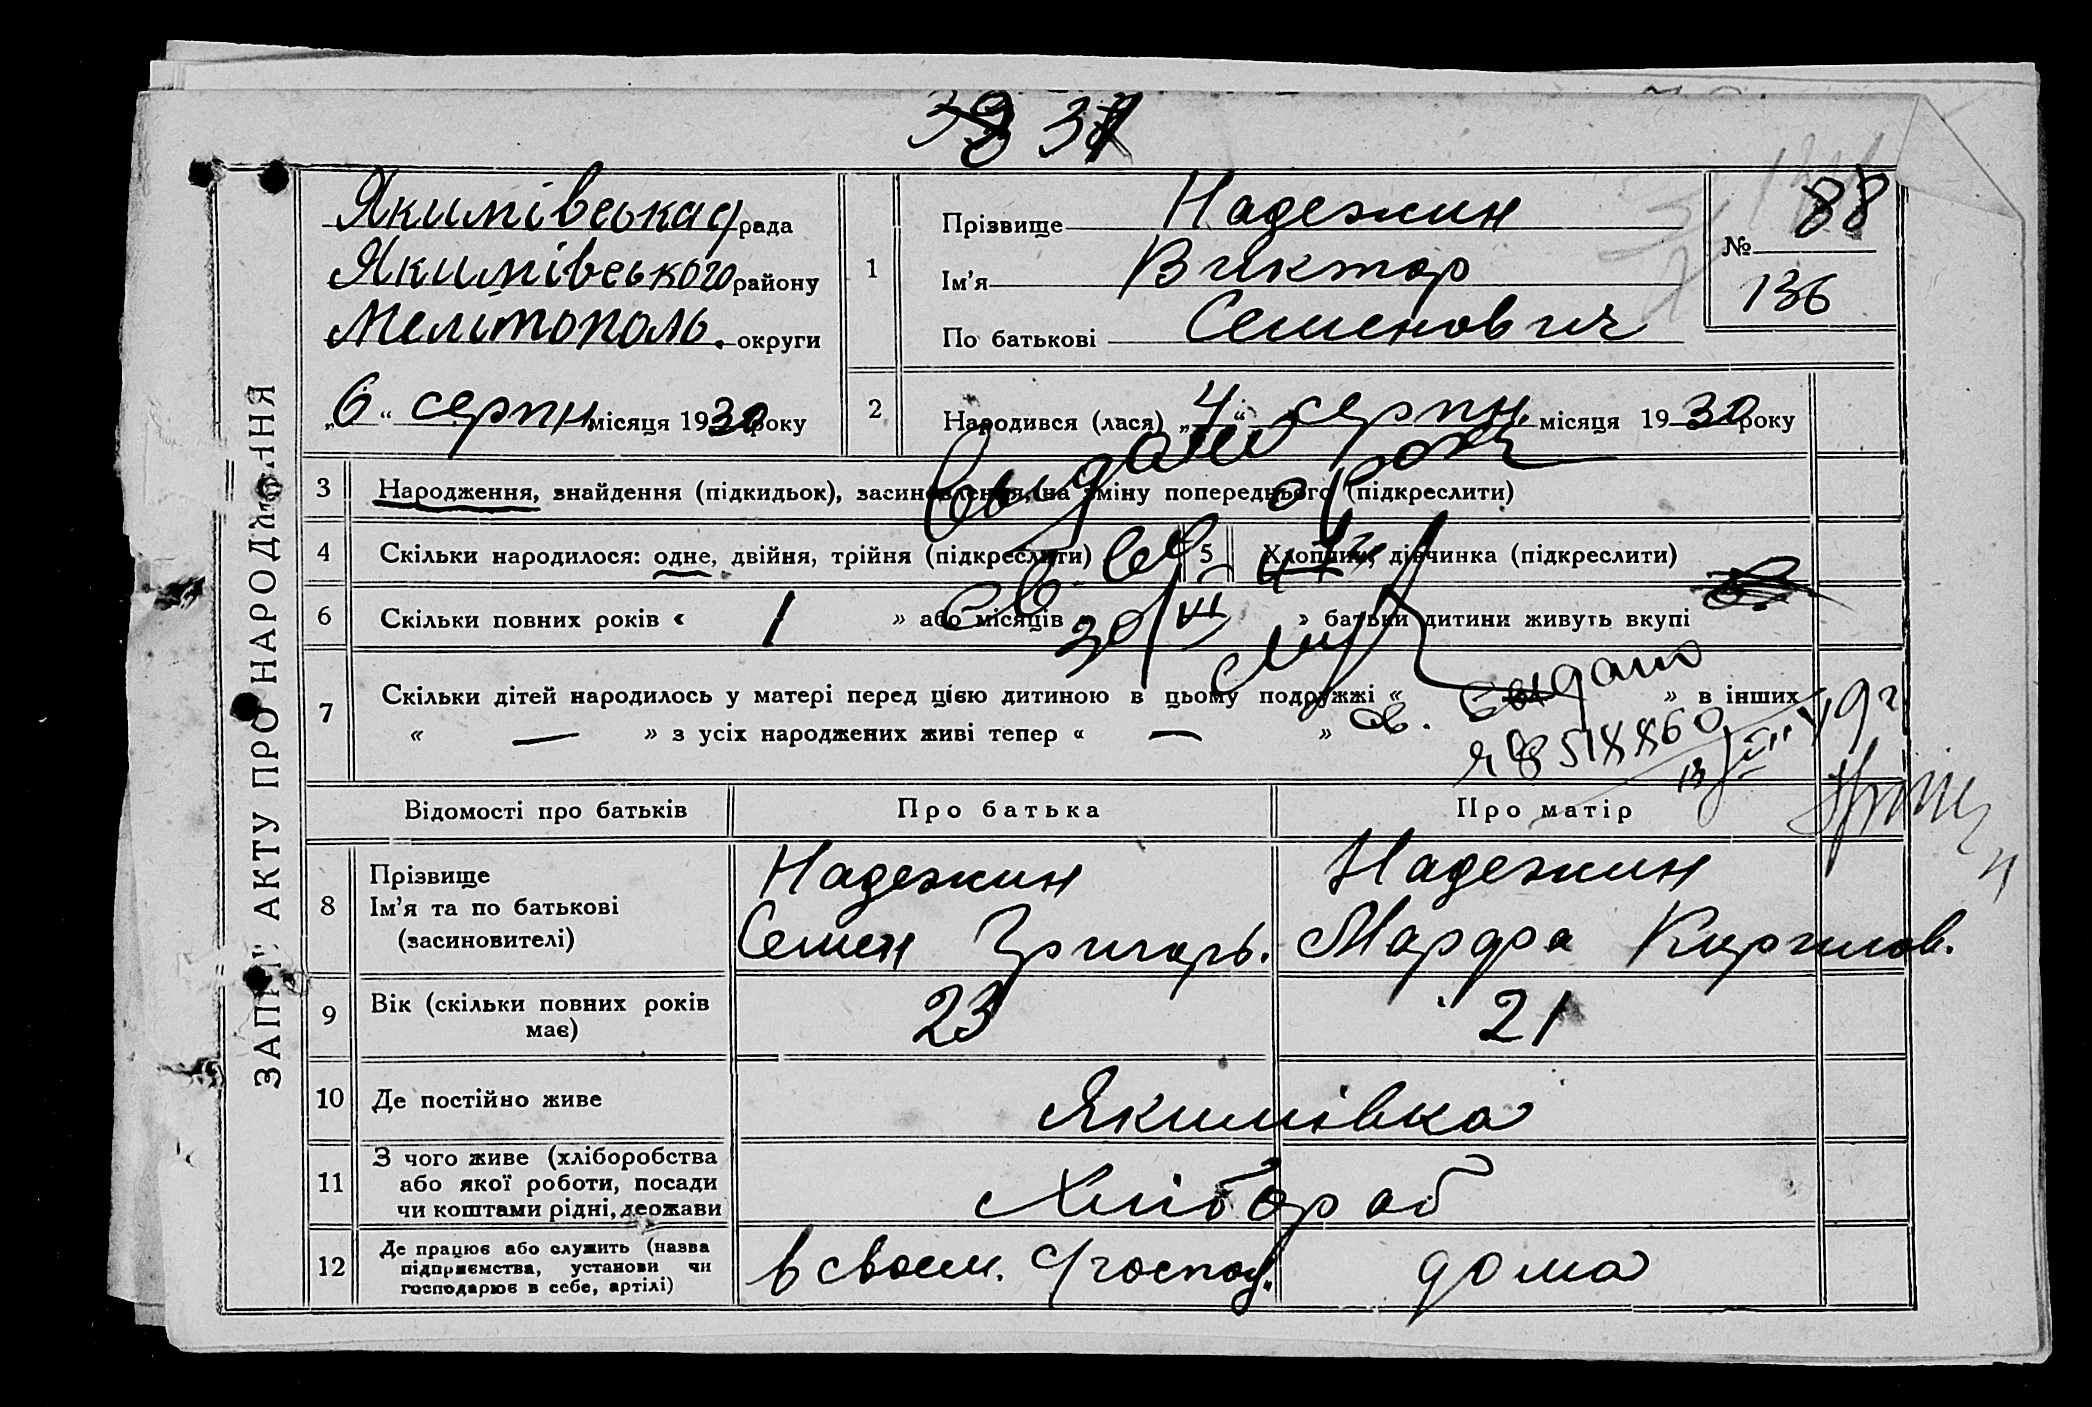 37
Якимівська рада
Якимівського району
Мелітополь. округи
„6“ серпн. місяця 1930 року
1
Прізвище Надежин
Ім'я Виктор
По батькові Семенович
№ 88
136
2
Народився (лася) „4“ серпн. місяця 1930 року
ЗАПИС АКТУ ПРО НАРОДЖЕННЯ
3 Народження, знайдення (підкидьок), засиновлення, на зміну попереднього (підкреслити)
4 Скільки народилося: одне, двійня, трійня (підкреслити)
5 Хлопчик, дівчинка (підкреслити)
6 Скільки повних років « 1 » або місяців » батьки дитини живуть вкупі
7 Скільки дітей народилось у матері перед цією дитиною в цьому подружжі « » в інших
« — » з усіх народжених живі тепер « — »
св. выдано
Відомості про батьків
Про батька
Про матір
8 Прізвище
Ім'я та по батькові
(засиновителі)
Надежин
Семен Григорь.
Надежин
Марфа Кирилов.
9 Вік (скільки повних років
має)
23
21
10 Де постійно живе
Якимівка
11 З чого живе (хліборобства
або якої роботи, посади
чи коштами рідні, держави
Хлібороб
12 Де працює або служить (назва
підприємства, установи чи
господарює в себе, артілі)
в своем. господ.
дома